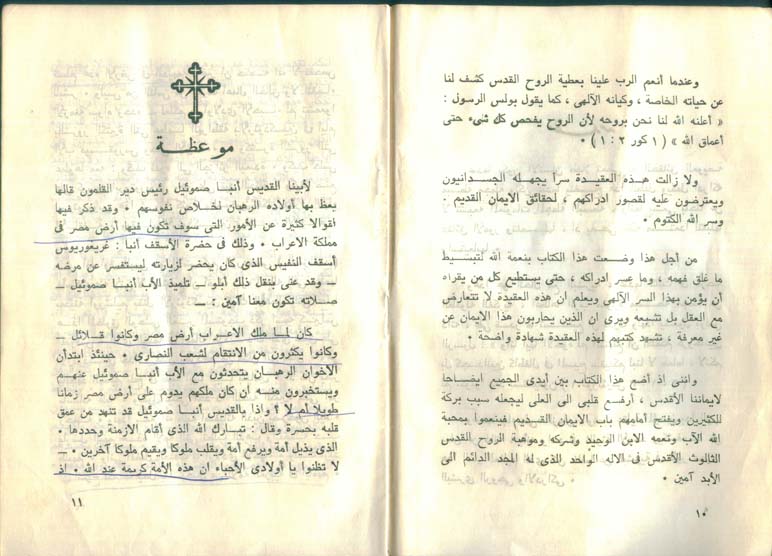 وعندما أنعم الرب علينا بعطية الروح القدس كشف لنا
عن حياته الخاصة ، وكيانه الآلهى ، كما يقول بولس الرسول :
« أعلنه الله لنا نحن بروحه لأن الروح يفحص كل شىء حتى
أعماق الله » ( ١ كور ٢ : ١ ) ٠
ولا زالت هذه العقيدة سراً يجهله الجسدانيون
ويعترضون عليه لقصور ادراكهم ، لحقائق الايمان القديم ٠
وسر الله الكتوم ٠
من أجل هذا وضعت هذا الكتاب بنعمة الله لتبسيط
ما غلق فهمه ، وما عسر ادراكه ، حتى يستطيع كل من يقراه
أن يؤمن بهذا السر الآلهى ويعلم ان هذه العقيدة لا تتعارض
مع العقل بل تشبعه ويرى ان الذين يحاربون هذا الايمان عن
غير معرفة ، تشهد كتبهم لهذه العقيدة شهادة واضحة ٠
واننى اذ أضع هذا الكتاب بين أيدى الجميع ايضاحا
لايماننا الأقدس ، أرفع قلبى الى العلى ليجعله سبب بركة
للكثيرين ويفتح أمامهم باب الايمان القديم فينعموا بمحبة
الله الآب ونعمه الابن الوحيد وشركه وموهبة الروح القدس
الثالوث الأقدس فى الاله الواحد الذى له المجد الدائم الى
الأبد آمين ٠
١٠
موعظة
لأبينا القديس أنبا صموئيل رئيس دير القلمون قالها
يعظ بها أولاده الرهبان لخلاص نفوسهم ٠ وقد ذكر فيها
اقوالا كثيرة عن الأمور التى سوف تكون فيها أرض مصر فى
مملكة الاعراب ٠ وذلك فى حضرة الأسقف أنبا : غريغوريوس
أسقف النفيس الذى كان يحضر لزيارته ليستفسر عن مرضه
ــ وقد عنى بنقل ذلك أبلو ــ تلميذ الأب أنبا صموئيل ــ
صلاته تكون معنا آمين : ــ
كان لما ملك الاعراب أرض مصر وكانوا قلائل ــ
وكانوا يكثرون من الانتقام لشعب النصارى ٠ حينئذ ابتدأن
الآخوان الرهبان يتحدثون مع الأب أنبا صموئيل عنهم
ويستخبرون منه ان كان ملكهم يدوم على أرض مصر زمانا
طويلا أم لا ؟ واذا بالقديس أنبا صموئيل قد تنهد من عمق
قلبه بحسرة وقال : تبارك الله الذى أقام الازمنة وحددها ٠
الذى يذيل أمة ويرفع أمة ويقلب ملوكا ويقيم ملوكا آخرين ٠
لا تظنوا يا أولادى الأحباء ان هذه الأمة كريمة عند الله ٠ اذ
١١